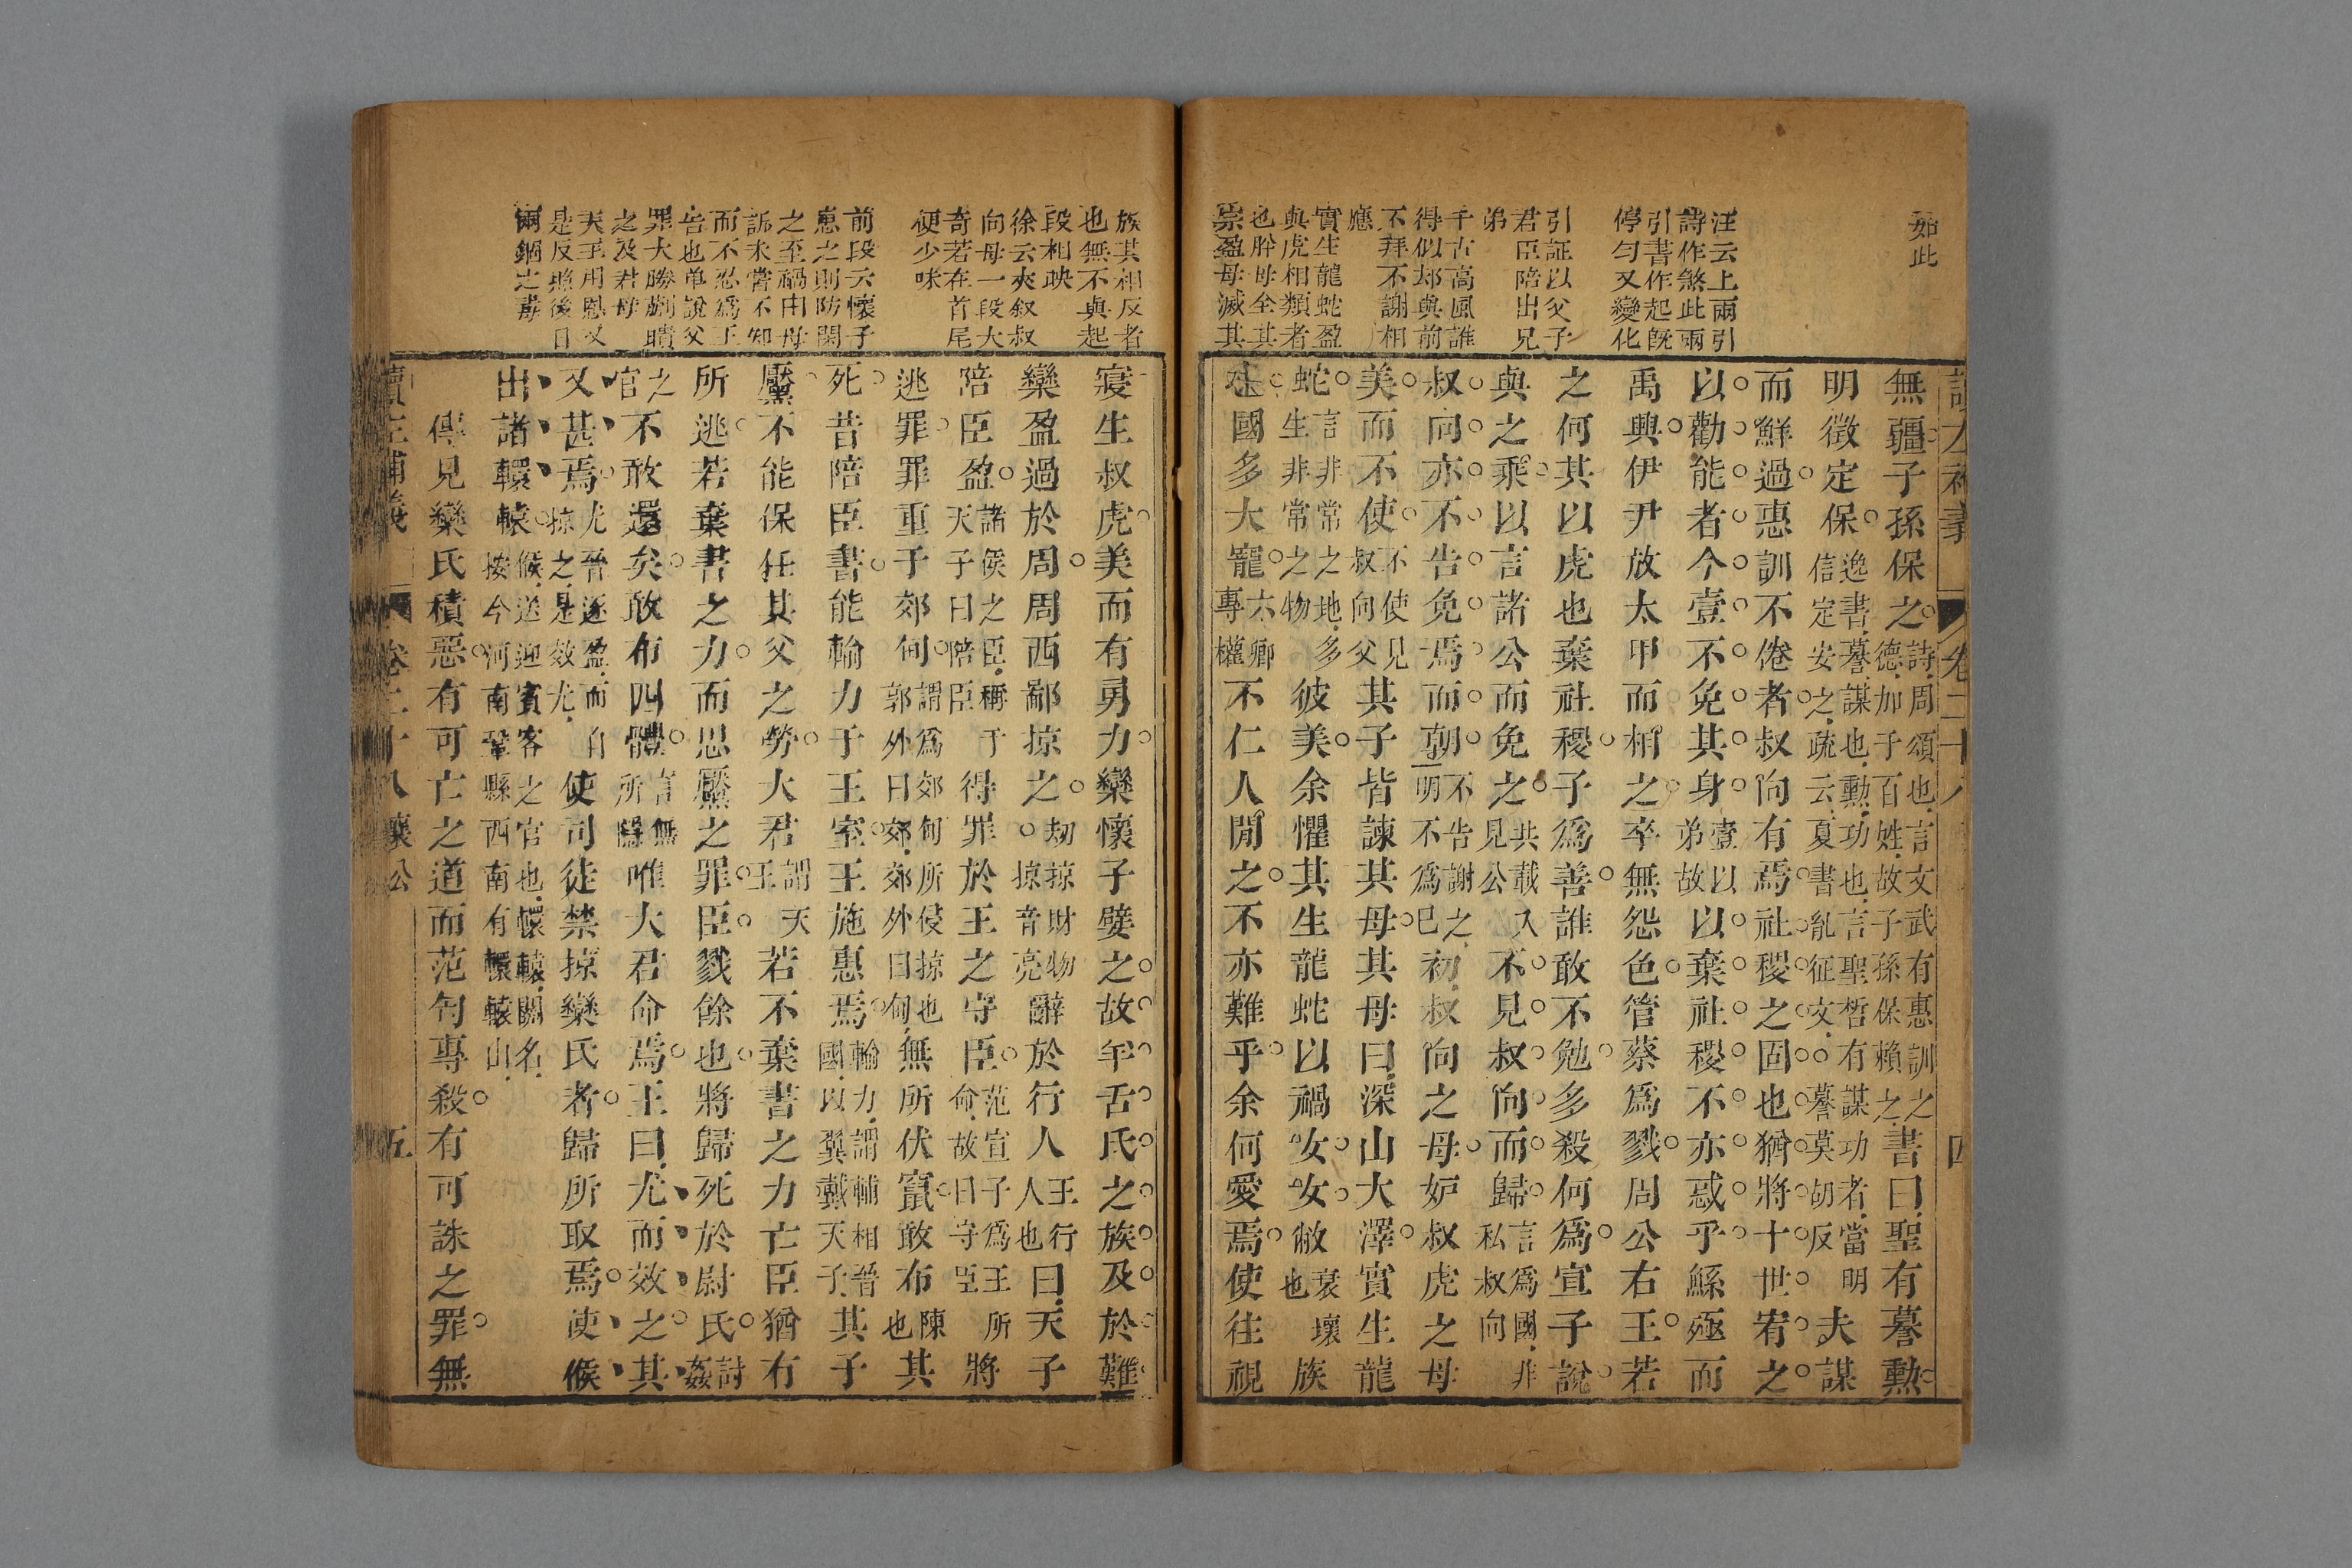 如此
汪云上兩引
詩作煞此兩
引書作起既
停勻又變化
引証以父子
君臣陪出兄
弟
千古高風誰
得似邴與前
不拜不謝相
應
實生龍蛇盈
與虎相類者
也胖母全其
宗盈母滅其
讀左補義 卷二十八 四
無疆子孫保之詩周頌也言文武有惠訓之德加于百姓故子孫保賴之書曰聖有謩勲
明徵定保逸書謩謀也勲功也言聖哲有謀功者當明信定安之疏云夏書亂征文○謩莫胡反夫謀
而鮮過惠訓不倦者叔向有焉社稷之固也猶將十世宥之
以勸能者今壹不免其身壹以弟故以棄社稷不亦惑乎鯀殛而
禹興伊尹放太甲而相之卒無怨色管蔡為戮周公右王若
之何其以虎也棄社稷子為善誰敢不勉多殺何為宣子說
與之乘以言諸公而免之共載入見公不見叔向而歸言為國非私叔向
叔向亦不告免焉而朝不告謝之明不為已初叔向之母妒叔虎之母
美而不使不使見叔向父其子皆諫其母其母曰深山大澤實生龍
蛇言非常之地多生非常之物彼美余懼其生龍蛇以禍女女敝衰壞也族
也國多大寵六卿專權不仁人閒之不亦難乎余何愛焉使往視
族其相反者
也無不與起
段相映
徐云夾叙叔
向母一段大
奇若在首尾
便少味
前段云懷子
患之則防閑
之至禍由母
訴未嘗不知
而不忍為王
告也单說父
罪大勝蒯聵
之及君母
天王用恩又
是反照後日
兩錮之毒
寢生叔虎美而有勇力欒懷子嬖之故羊舌氏之族及於難
欒盈過於周周西鄙掠之劫掠財物○掠音亮辭於行人王行人也曰天子
陪臣盈諸侯之臣稱于天子曰陪臣得罪於王之守臣范宣子為王所命故曰守臣將
逃罪罪重于郊甸謂為郊甸所侵掠也郭外曰郊郊外曰甸無所伏竄敢布陳也其
死昔陪臣書能輸力于王室王施惠焉輸力謂輔相晉國以翼戴天子其子
黶不能保任其父之勞大君謂天王若不棄書之力亡臣猶有
所逃若棄書之力而思黶之罪臣戮餘也將歸死於尉氏討姦
之官不敢還矣敢布四體言無所隱唯大君命焉王曰尤而效之其
又甚焉尤晉逐盈而自掠之是效尤使司徒禁掠欒氏者歸所取焉使候
出諸轘轅候送迎賓客之官也轘轅關名按今河南鞏縣西南有轘轅山
傳見欒氏積惡有可亡之道而范匄專殺有可誅之罪無
讀左補義 卷二十八 襄公 五